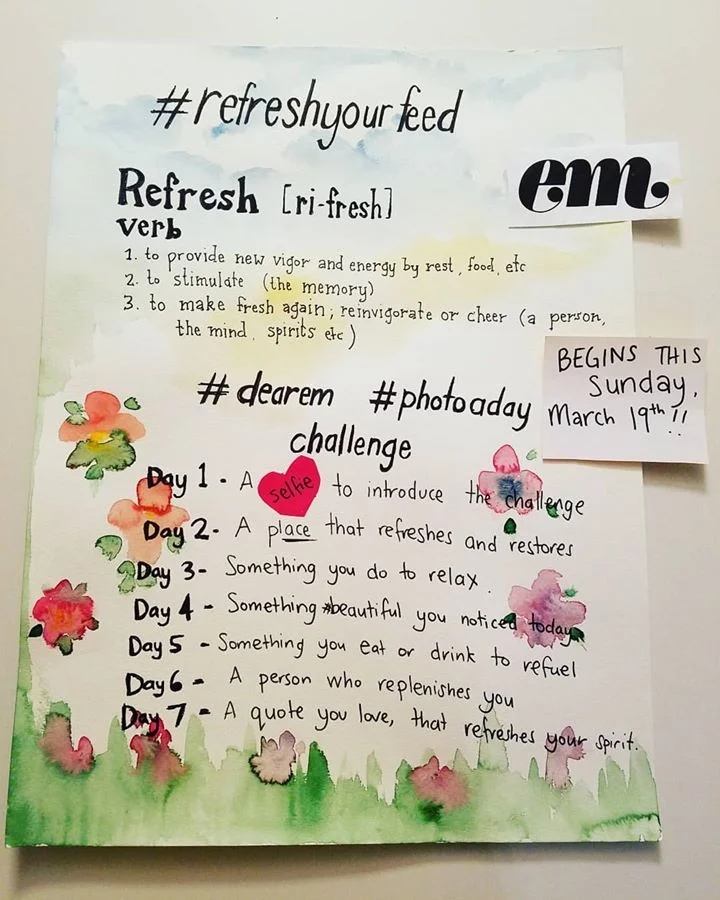 #refreshyourfeed
em.
Refresh [ri-fresh]
verb
1. to provide new vigor and energy by rest, food, etc
2. to stimulate (the memory)
3. to make fresh again; reinvigorate or cheer (a person,
the mind, spirits etc)
BEGINS THIS
Sunday,
March 19th!!
#dearem #photoaday
challenge
Day 1 - A selfie to introduce the challenge
Day 2- A place that refreshes and restores
Day 3- Something you do to relax.
Day 4 - Something beautiful you noticed today
Day 5 - Something you eat or drink to refuel
Day 6 - A person who replenishes you
Day 7 - A quote you love, that refreshes your spirit.